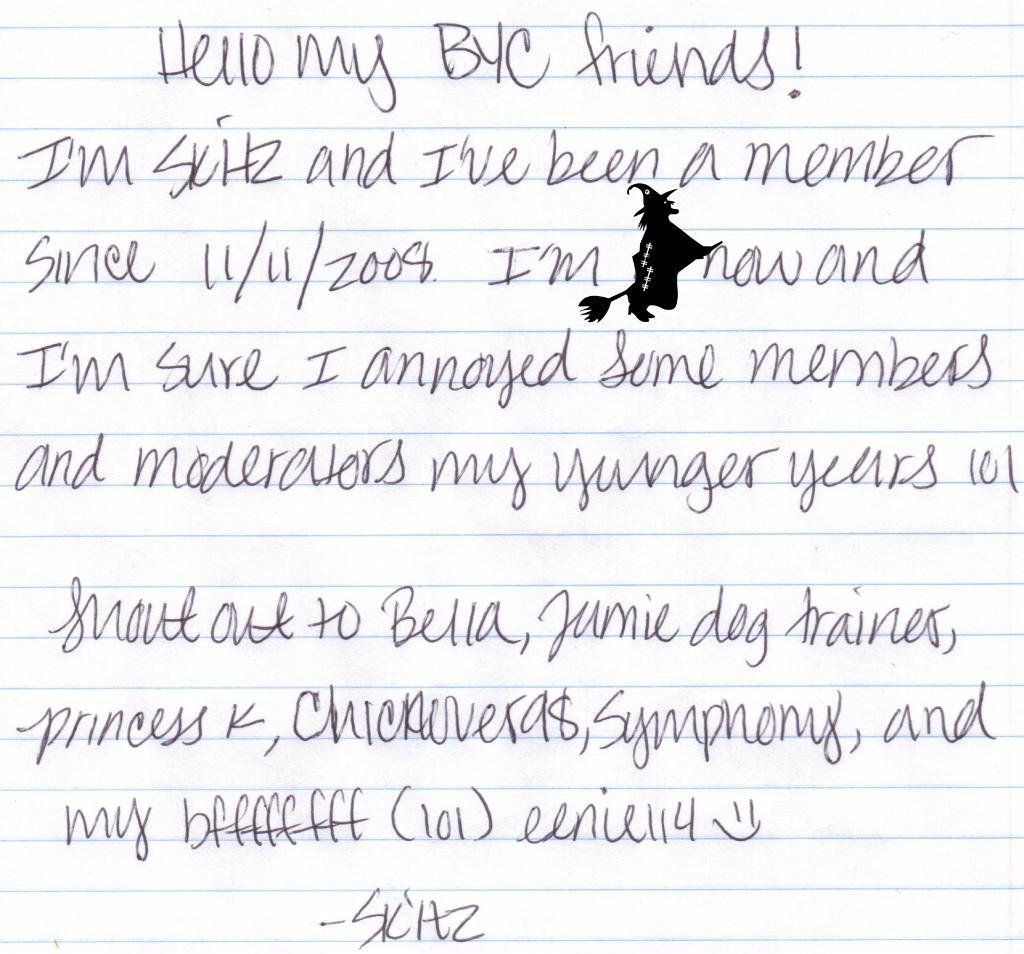 Hello my BYC friends!
I'm Skitz and I've been a member
since 11/11/2008. I'm now and
I'm sure I annoyed some members
and moderators my yunger years lol
Shout out to Bella, Jamie dog trainer,
princess K, Chickluver98, Symphony, and
my bffffffff (lol) eenie114
-Skitz